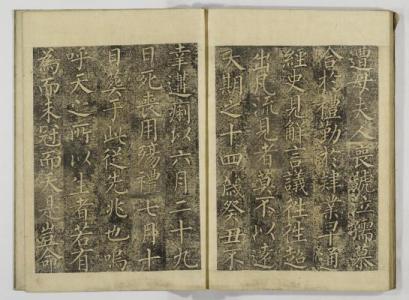 遭母夫人喪號泣孺慕
合於禮勤於肄業早通
經史見解言議往往超
出凡流見者莫不以遠
大期之十四歲癸丑不
幸遘痢以六月二十九
日死喪用殤禮七月十
日葬于此從先兆也嗚
呼天之所以生者若有
為而未冠而夭是豈命